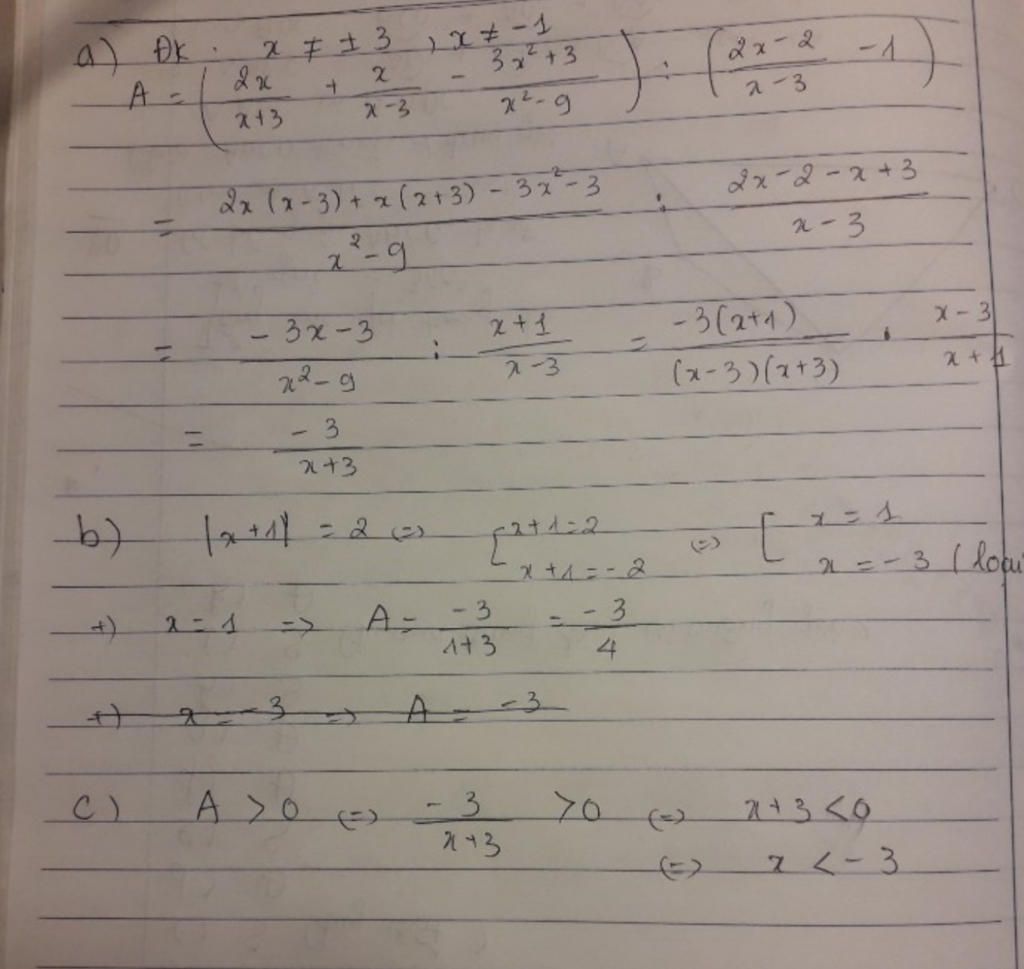 a) ĐK : x ≠ ± 3 , x ≠ -1
A = ( 2x/(x+3) + x/(x-3) - (3x²+3)/(x²-9) ) : ( (2x-2)/(x-3) - 1 )
= (2x(x-3) + x(x+3) - 3x² - 3)/(x²-9) : (2x-2-x+3)/(x-3)
= (-3x-3)/(x²-9) : (x+1)/(x-3) = (-3(x+1))/((x-3)(x+3)) . (x-3)/(x+1)
= -3/(x+3)
b) |x+1| = 2 <=> [ x+1=2 <=> [ x = 1
x+1=-2 x = -3 (loại
+) x = 1 => A = -3/(1+3) = -3/4
+) x = -3 => A = -3
c) A > 0 <=> -3/(x+3) > 0 <=> x+3 < 0
<=> x < -3